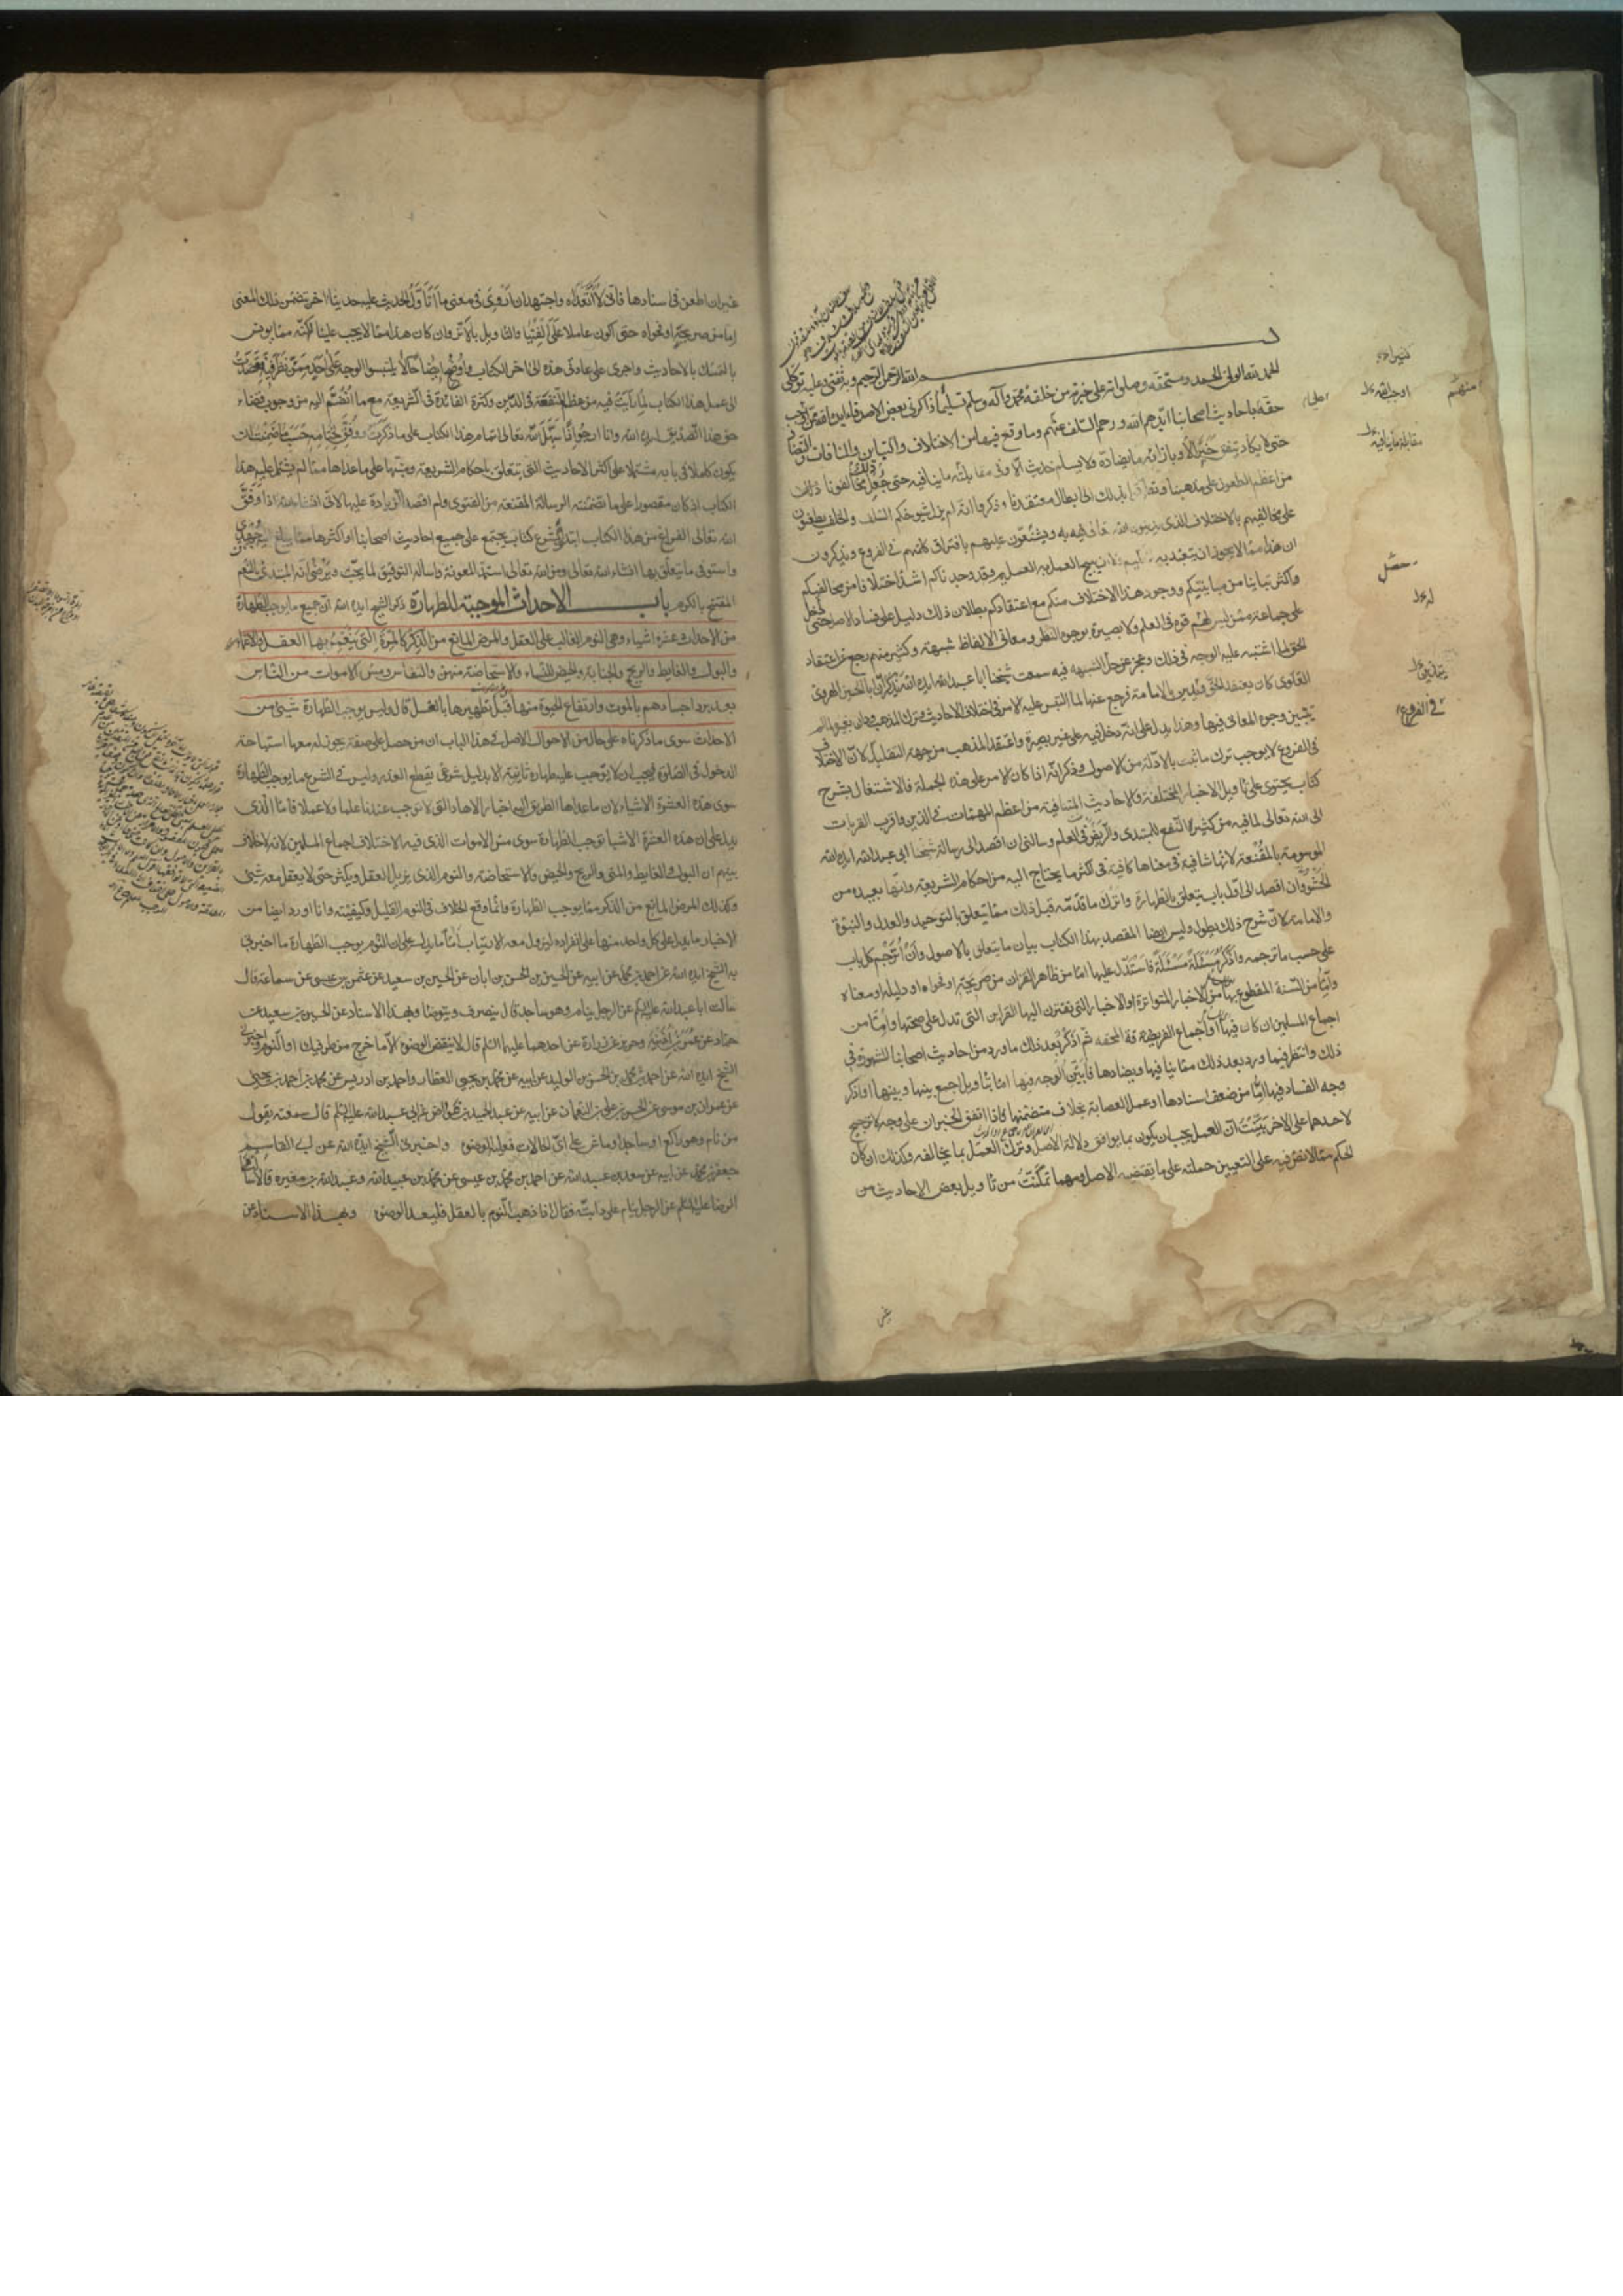 بسم الله الرحمن الرحيم وبه ثقتي وعليه توكلي
الحمد لله ولي الحمد ومستحقه وصلواته على خيرته من خلقه محمد وآله وسلم تسليما ذاكرني بعض الاصدقاء ايده الله ممن اوجب
حقه باحاديث اصحابنا ايدهم الله ورحم السلف منهم وما وقع فيها من الاختلاف والتباين والمنافات والتضاد
حتى لا يكاد يتفق خبر الا وبازائه ما يضاده ولا يسلم حديث الا وفي مقابلته ما ينافيه حتى جعل مخالفونا ذلك
من اعظم الطعون على مذهبنا وتطرقوا بذلك الى ابطال معتقدنا وذكروا انه لم يزل شيوخكم السلف والخلف يطعنون
على مخالفيهم بالاختلاف الذي يدينون الله تعالى به ويشنعون عليهم بافتراق كلمتهم في الفروع ويذكرون
ان هذا مما لا يجوز ان يتعبد به الحكيم ولا ان يبيح العمل به العليم وقد وجدناكم اشد اختلافا من مخالفيكم
واكثر تباينا من مباينيكم ووجود هذا الاختلاف منكم مع اعتقادكم بطلان ذلك دليل على فساد الاصل حتى دخل
على جماعة ممن ليس لهم قوة في العلم ولا بصيرة بوجوه النظر ومعاني الالفاظ شبهة وكثير منهم رجع عن اعتقاد
الحق لما اشتبه عليه الوجه في ذلك وعجز عن حل الشبهه فيه سمعت شيخنا ابا عبد الله ايده الله يذكر ان ابا الحسين الهروي
العلوي كان يعتقد الحق ويدين بالامامة فرجع عنها لما التبس عليه الامر في اختلاف الاحاديث وترك المذهب ودان بغيره لما لم
يتبين وجوه المعاني فيها وهذا يدل على انه دخل فيه على غير بصيرة واعتقد المذهب من جهة التقليد لان الاختلاف
في الفروع لا يوجب ترك ما ثبت بالادلة من الاصول وذكر انه اذا كان الامر على هذه الجملة فالاشتغال بشرح
كتاب يحتوي على تاويل الاخبار المختلفة والاحاديث المتنافية من اعظم المهمات في الدين واقرب القربات
الى الله تعالى لما فيه من كثرة النفع للمبتدي والريض في العلم وسالني ان اقصد الى رسالة شيخنا ابي عبد الله ايده الله
الموسومة بالمقنعة لانها شافية في معناها كافية في اكثر ما يحتاج اليه من احكام الشريعة وانها بعيدة من
الحشو وان اقصد الى اول باب يتعلق بالطهارة واترك ما قدمه قبل ذلك مما يتعلق بالتوحيد والعدل والنبوة
والامامة لان شرح ذلك يطول وليس ايضا المقصد بهذا الكتاب بيان ما يتعلق بالاصول وان اترجم كل باب
على حسب ما ترجمه واذكر مسئلة مسئلة فاستدل عليها اما من ظاهر القران من صريحه او فحواه او دليله او معناه
واما من السنة المقطوع بها من الاخبار المتواترة او الاخبار التي تقترن اليها القراين التي تدل على صحتها واما من
اجماع المسلمين ان كان فيها او اجماع الفرقة المحقه ثم اذكر بعد ذلك ما ورد من احاديث اصحابنا المشهورة في
ذلك وانظر فيما ورد بعد ذلك مما ينافيها ويضادها فابين الوجه فيها اما بتاويل اجمع بينها وبينها او اذكر
وجه الفساد فيها اما من ضعف اسنادها او عمل العصابة بخلاف متضمنها فاذا اتفق الخبران على وجه لا ترجيح
لاحدهما على الاخر بينت ان العمل يجب ان يكون بما يوافق دلالة الاصل وترك العمل بما يخالفه وكذلك ان كان
الحكم مما لا نص فيه على التعيين حملته على ما يقتضيه الاصل ومهما تمكنت من تاويل بعض الاحاديث من
غير ان اطعن في اسنادها فاني لا اتعداه واجتهد ان اروي في معنى ما اتاول الحديث عليه حديثا اخر يتضمن ذلك المعنى
اما من صريحه او فحواه حتى اكون عاملا على الفتيا والتاويل بالاثر وان كان هذا مما لا يجب علينا لكنه مما يونس
بالتمسك بالاحاديث واجري على عادتي هذه الى اخر الكتاب واوضح ايضاحا لا يلتبس الوجه على احد ممن نظر فيه فقصدت
الى عمل هذا الكتاب لما رايت فيه من عظم المنفعة في الدين وكثرة الفائدة في الشريعة مع ما انضم اليه من وجوب قضاء
حق هذا الصديق ايده الله وانا ارجو اذا سهل الله تعالى اتمام هذا الكتاب على ما ذكرت ووفق لختامه حسب ما ضمنت ان
يكون كاملا في بابه مشتملا على اكثر الاحاديث التي تتعلق باحكام الشريعة ومنبها على ما عداها مما لم يشتمل عليه هذا
الكتاب اذ كان مقصورا على ما تضمنته الرسالة المقنعة من الفتوى ولم اقصد الزيادة عليها لاني انشاء الله اذا وفق
الله تعالى الفراغ من هذا الكتاب ابتدي بشرع كتاب يجتمع على جميع احاديث اصحابنا او اكثرها مما يبلغ اليه جهدي
واستوفي ما يتعلق بها انشاء الله تعالى ومن الله تعالى استمد المعونة واساله التوفيق لما يحب ويرضى انه المبتدئ بالنعم
المفتتح بالكرم باب الاحداث الموجبة للطهارة ذكر الشيخ ايده الله ان جميع ما يوجب الطهارة
من الاحداث عشرة اشياء وهي النوم الغالب على العقل والمرض المانع من الذكر كالمرة التي ينغمر بها العقل والاغماء
والبول والغايط والريح والجنابة والحيض للنساء والاستحاضة منهن والنفاس ومس الاموات من الناس
بعد برد اجسادهم بالموت وارتفاع الحيوة منها قبل تطهيرها بالغسل قال وليس يوجب الطهارة شيئ من
الاحداث سوى ما ذكرناه على حال من الاحوال الاصل في هذا الباب ان من حصل على صفة يجوز له معها استباحة
الدخول في الصلوة فيجب ان لا توجب عليه طهارة ثانية الا بدليل شرعي يقطع العذر وليس في الشرع ما يوجب الطهارة
سوى هذه العشرة الاشياء لان ما عداها الطريق اليه اخبار الاحاد التي لا توجب عندنا علما ولا عملا فاما الذي
يدل على ان هذه العشرة الاشيا توجب الطهارة سوى مس الاموات الذي فيه الاختلاف اجماع المسلمين لانه لا خلاف
بينهم ان البول والغايط والمني والريح والحيض والاستحاضة والنوم الذي يزيل العقل ويكثر حتى لا يعقل معه شيئ
وكذلك المرض المانع من الذكر مما يوجب الطهارة وانما وقع الخلاف في النوم القليل وكيفيته وانا اورد ايضا من
الاخبار ما يدل على كل واحد منها على انفراده ليزول معه الارتياب اما ما يدل على ان النوم يوجب الطهارة ما اخبرني
به الشيخ ايده الله عن احمد بن محمد عن ابيه عن الحسين بن الحسن بن ابان عن الحسين بن سعيد عن عثمن بن عيسى عن سماعة قال
سالت ابا عبد الله عليه السلم عن الرجل ينام وهو ساجد قال ينصرف ويتوضا وبهذا الاسناد عن الحسين بن سعيد عن
حماد عن عمر بن اذينه وحريز عن زرارة عن احدهما عليهما السلم قال لا ينقض الوضوء الا ما خرج من طرفيك او النوم اخبرني
الشيخ ايده الله عن احمد بن محمد بن الحسن بن الوليد عن ابيه عن محمد بن يحيى العطار واحمد بن ادريس عن محمد بن احمد بن يحيى
عن عمران بن موسى عن الحسن بن علي بن النعمان عن ابيه عن عبد الحميد بن عواض عن ابي عبد الله عليه السلم قال سمعته يقول
من نام وهو راكع او ساجد او ماش على اي الحالات فعليه الوضوء واخبرني الشيخ ايده الله عن ابي القاسم
جعفر بن محمد عن ابيه عن سعد بن عبد الله عن احمد بن محمد بن عيسى عن محمد بن عبيد الله وعبد الله بن مغيره قالا سالنا
الرضا عليه السلم عن الرجل ينام على دابته فقال اذا ذهب النوم بالعقل فليعد الوضوء وبهذا الاسناد عن